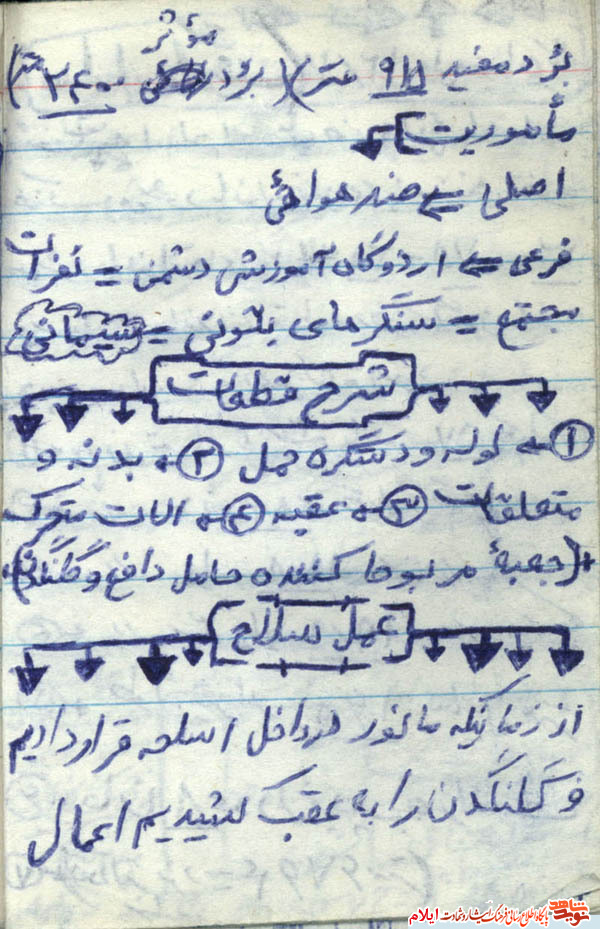 مؤثر
برد مفید ۹۱۱ متر) (برد ۳۴۰۰ متر)
مأموریت
اصلی = ضد هوائی
فرعی = اردوگاه آموزشی دشمن = نفرات
مجتمع = سنگرهای بتونی = سیمانی
شرح قطعات
۱ لوله و دستگره حمل ۲ بدنه و
متعلقات ۳ عقبه ۴ الات متحرک
+ (جعبهٔ مربوط کننده حامل دافع و گلنگدن)
عمل سلاح
از زمانیکه ما نوار در داخل اسلحه قرار دادیم
و گلنگدن را به عقب کشیدیم اعمال
نوید شاهد
پایگاه اطلاع رسانی فرهنگ ایثار و شهادت ایلام